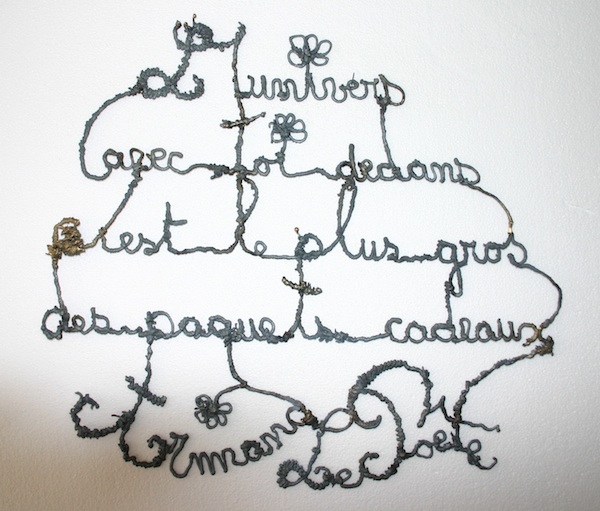 L'univers
avec toi dedans
C'est le plus gros
des paquets cadeaux
Armand Le Poête